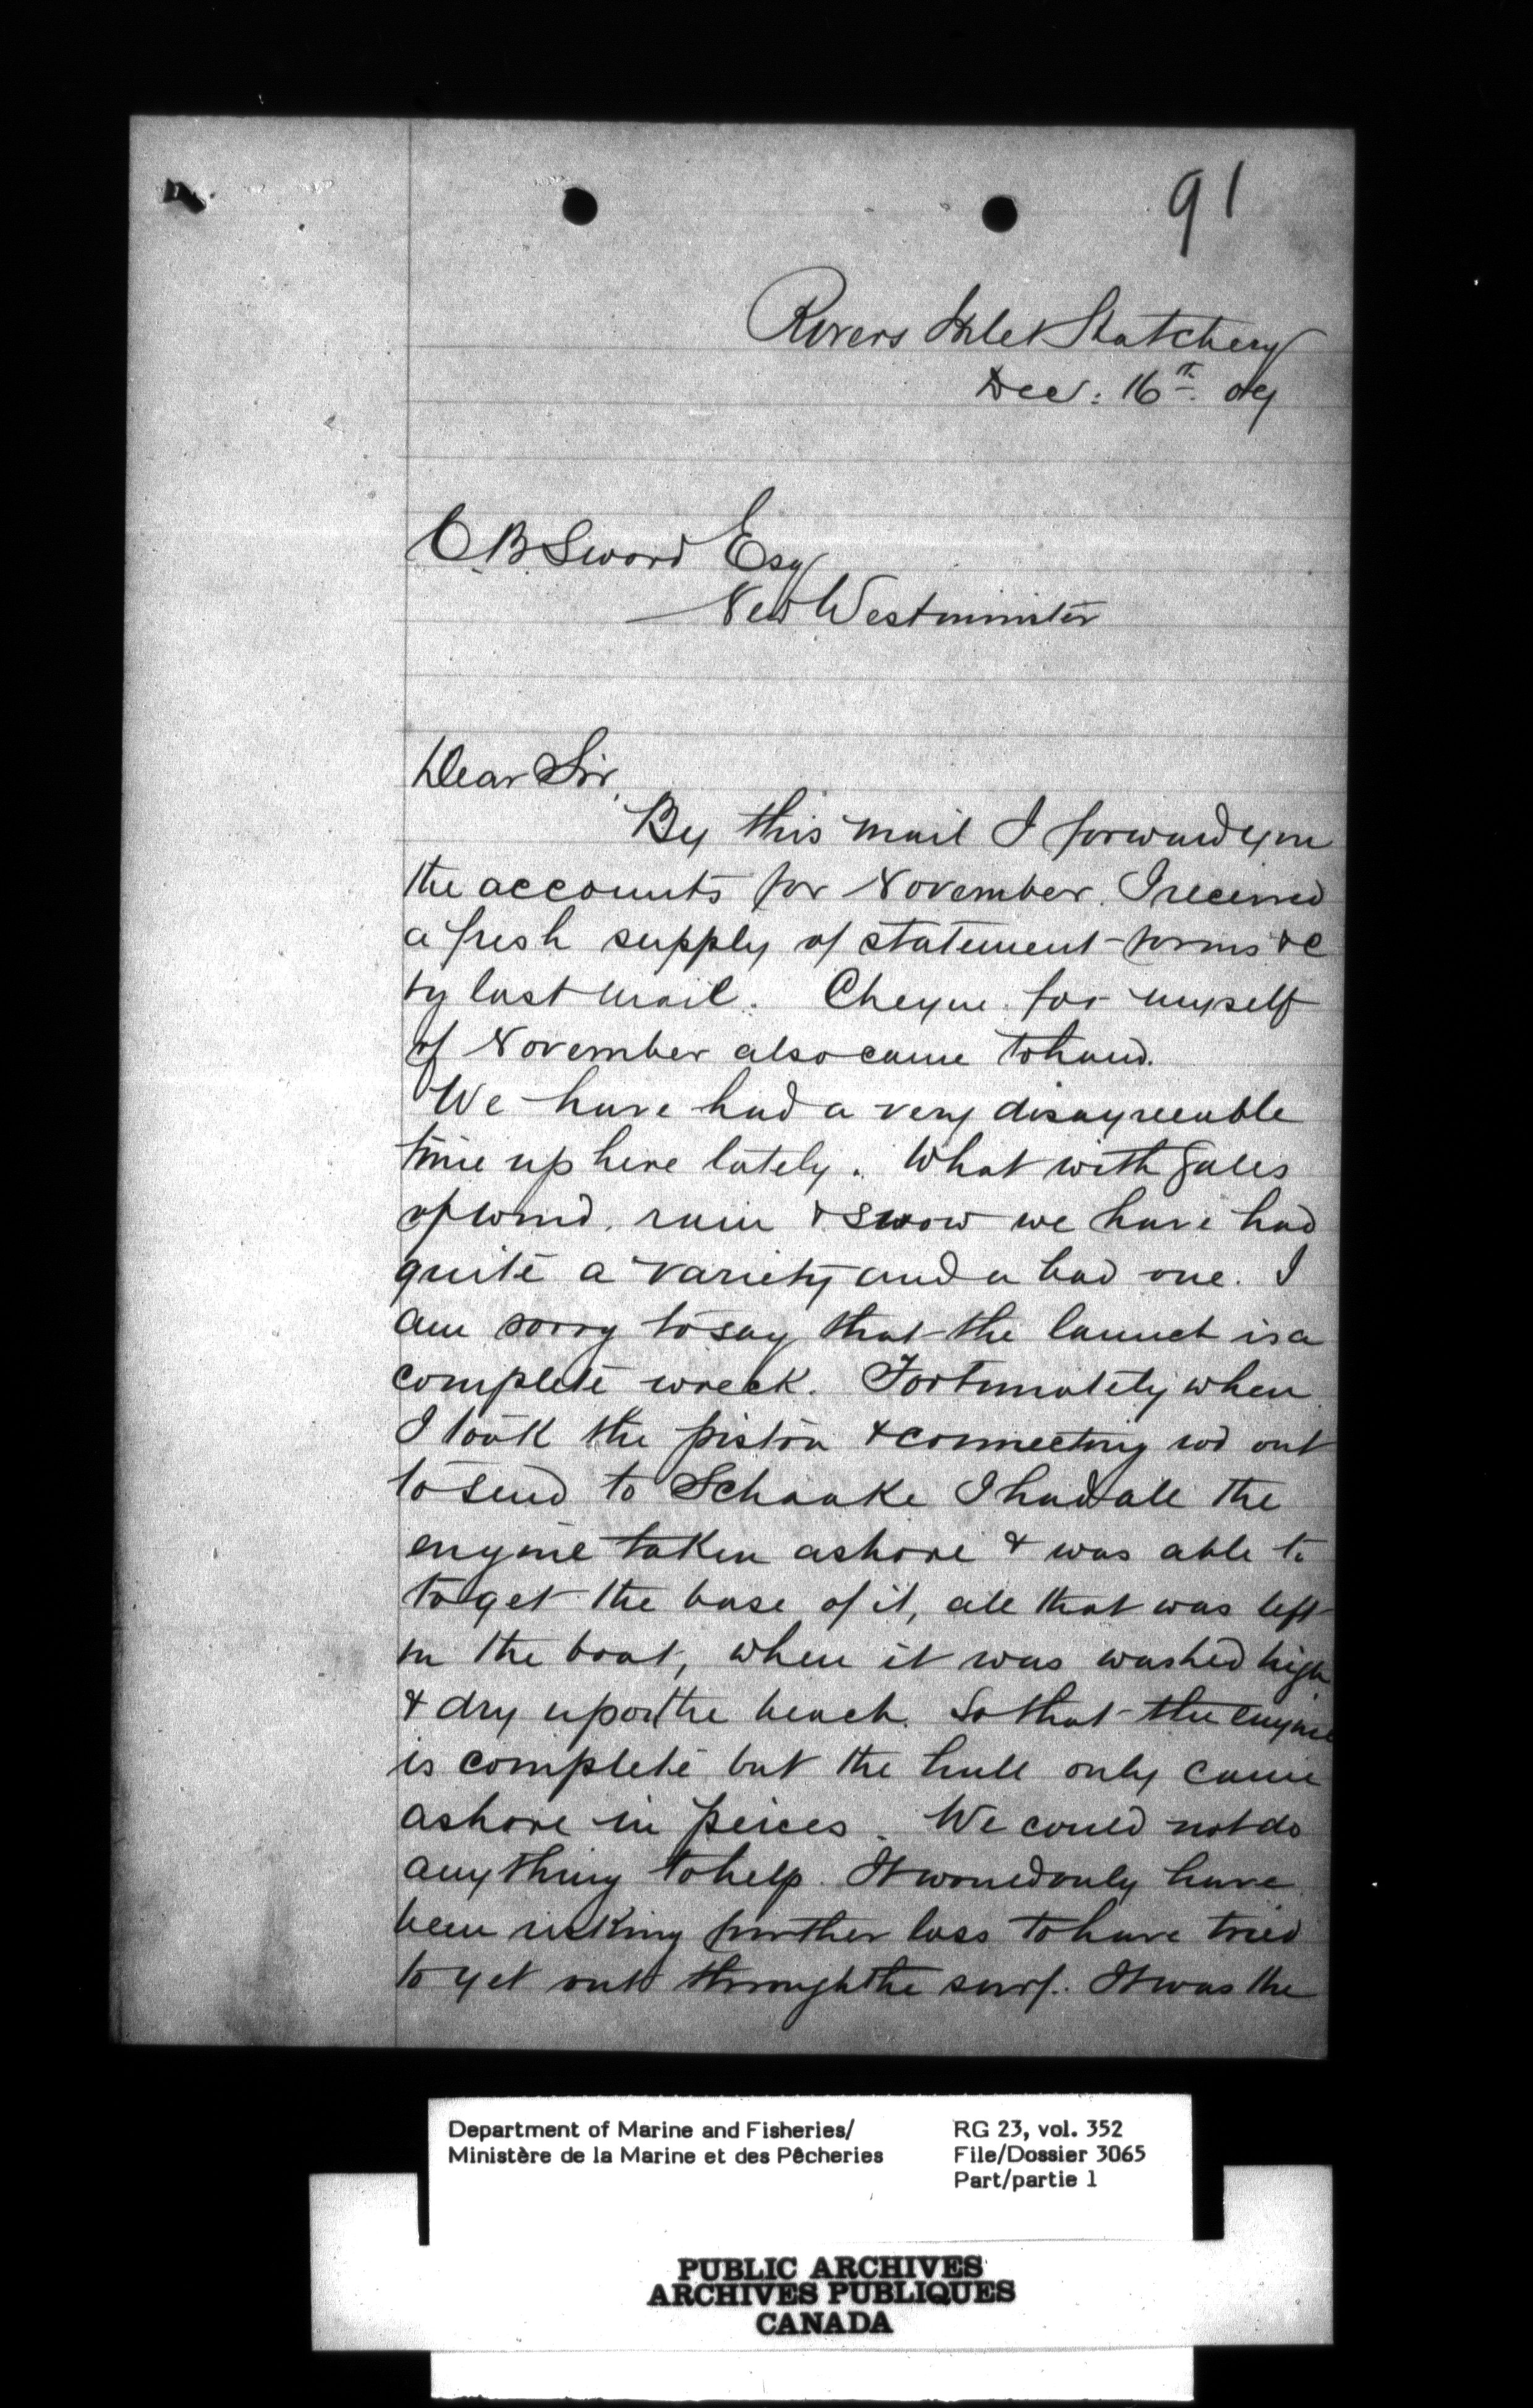 91
Rivers Inlet Hatchery
Dec: 16th 09
C.B. Sword Esq
New Westminster
Dear Sir,
By this mail I forward you
the accounts for November. I received
a fresh supply of statement forms &c
by last mail. Cheque for myself
of November also came to hand.
We have had a very disagreeable
time up here lately. What with gales
of wind, rain & snow we have had
quite a variety and a bad one. I
am sorry to say that the launch is a
complete wreck. Fortunately when
I took the piston & connecting rod out
to send to Schaake I had all the
engine taken ashore & was able to
to get the base of it, all that was left
in the boat, when it was washed high
& dry upon the beach. So that the engine
is complete but the hull only came
ashore in peices. We could not do
anything to help. It would only have
been risking further loss to have tried
to get out through the surf. It was the
Department of Marine and Fisheries/
Ministère de la Marine et des Pêcheries
RG 23, vol. 352
File/Dossier 3065
Part/partie 1
PUBLIC ARCHIVES
ARCHIVES PUBLIQUES
CANADA